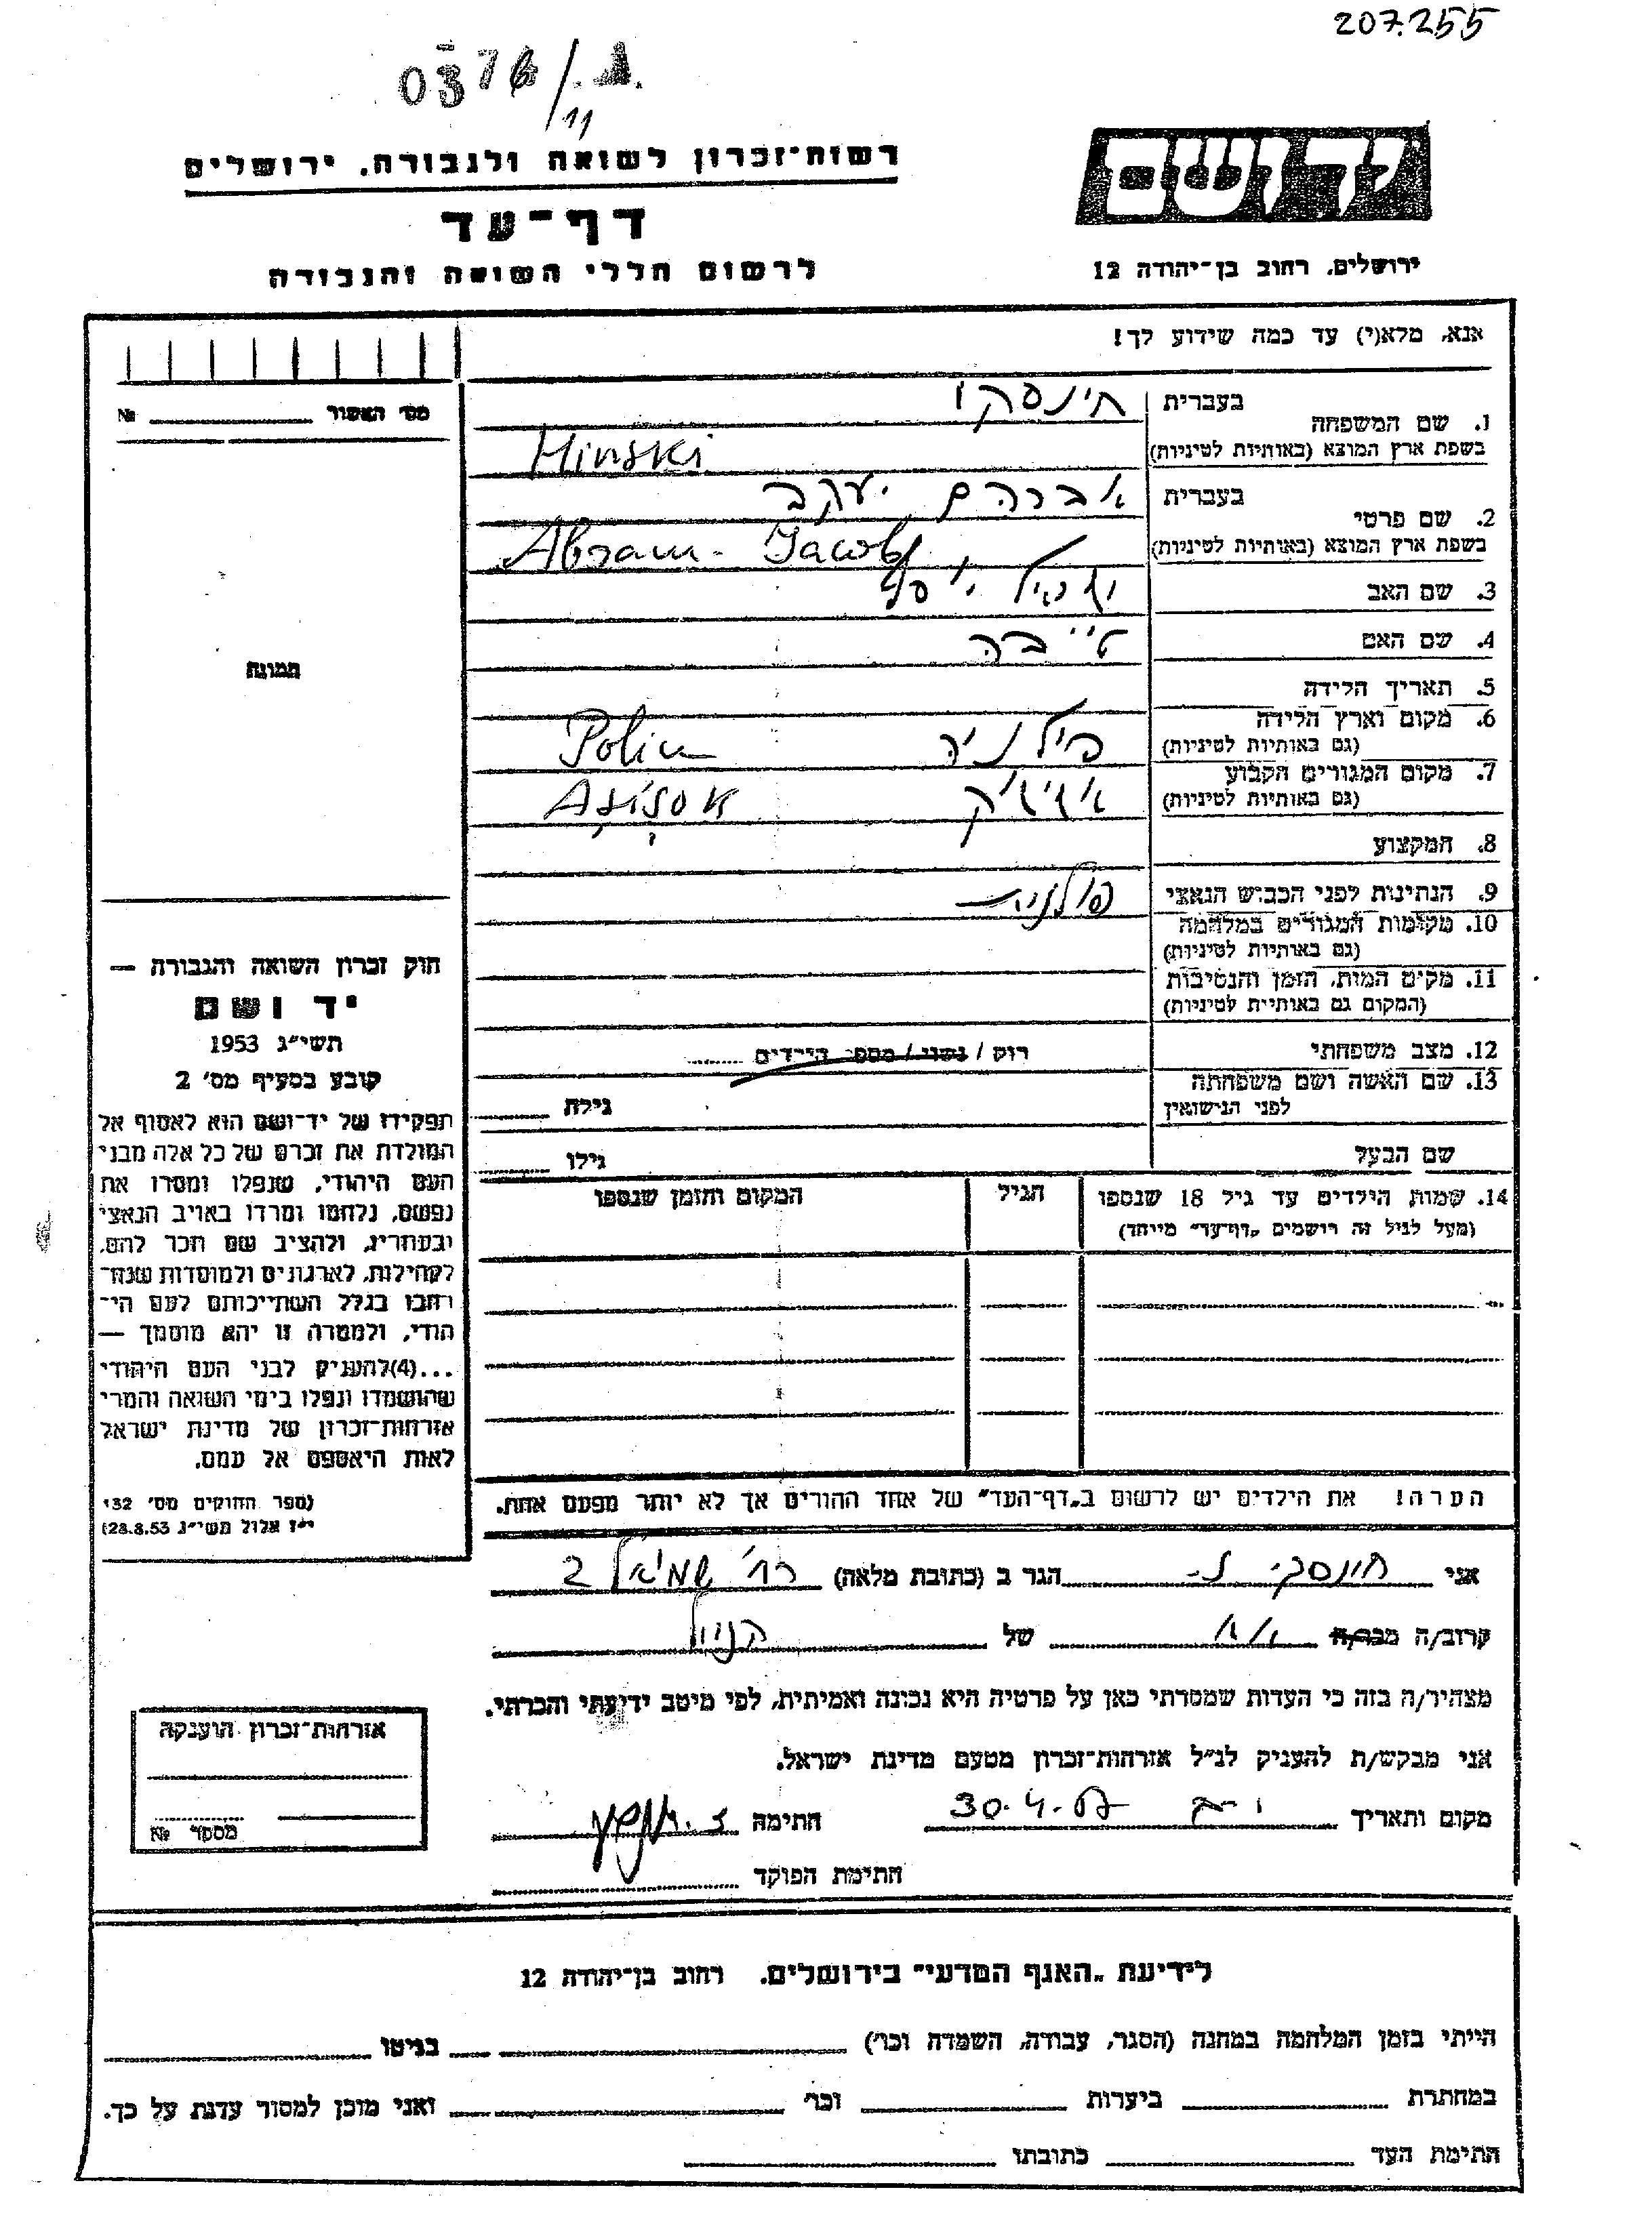 207.255
רשות־זכרון לשואה ולגבורה, ירושלים
יד ושם
דף־עד
לרשום חללי השואה והגבורה
ירושלים, רחוב בן־יהודה 12
אנא, מלא(י) עד כמה שידוע לך!
מס' האשור № 
1. שם המשפחה
בעברית
בשפת ארץ המוצא (באותיות לטיניות) Minski
2. שם פרטי
בעברית אברהם יעקב
בשפת ארץ המוצא (באותיות לטיניות) Abram - Jacob
3. שם האב
4. שם האם טייבה
תמונה
5. תאריך הלידה
6. מקום וארץ הלידה
(גם באותיות לטיניות)
7. מקום המגורים הקבוע
(גם באותיות לטיניות)
8. המקצוע
9. הנתינות לפני הכבוש הנאצי פולנית
10. מקומות המגורים במלחמה
(גם באותיות לטיניות)
11. מקום המות, הזמן והנסיבות
(המקום גם באותיות לטיניות)
12. מצב משפחתי רוק / נשוי / מספר הילדים
13. שם האשה ושם משפחתה
לפני הנישואין
גילה
שם הבעל
גילו
14. שמות הילדים עד גיל 18 שנספו
(מעל לגיל זה רושמים „דף־עד" מייחד)
הגיל
המקום והזמן שנספו
הערה! את הילדים יש לרשום ב„דף־העד" של אחד ההורים אך לא יותר מפעם אחת.
חוק זכרון השואה והגבורה —
יד ושם
תשי"ג 1953
קובע בסעיף מס' 2
תפקידו של יד־ושם הוא לאסוף אל
המולדת את זכרם של כל אלה מבני
העם היהודי, שנפלו ומסרו את
נפשם, נלחמו ומרדו באויב הנאצי
ובעוזריו, ולהציב שם וזכר להם,
לקהילות, לארגונים ולמוסדות שנח־
רבו בגלל השתייכותם לעם הי־
הודי, ולמטרה זו יהא מוסמך —
...(4)להעניק לבני העם היהודי
שהושמדו ונפלו בימי השואה והמרי
אזרחות־זכרון של מדינת ישראל
לאות היאספם אל עמם.
(ספר החוקים מס' 132
י"ז אלול תשי"ג 28.8.53)
אני חינסקי הגר ב (כתובת מלאה)
קרוב/ה מכר/ה של
מצהיר/ה בזה כי העדות שמסרתי כאן על פרטיה היא נכונה ואמיתית, לפי מיטב ידיעתי והכרתי.
אני מבקש/ת להעניק לנ"ל אזרחות־זכרון מטעם מדינת ישראל.
מקום ותאריך 30.4. חתימה
חתימת הפוקד
אזרחות־זכרון הוענקה
מספר №
לידיעת „האגף המדעי" בירושלים, רחוב בן־יהודה 12
הייתי בזמן המלחמה במחנה (הסגר, עבודה, השמדה וכו') בגיטו
במחתרת ביערות וכו' ואני מוכן למסור עדות על כך.
חתימת העד כתובתו